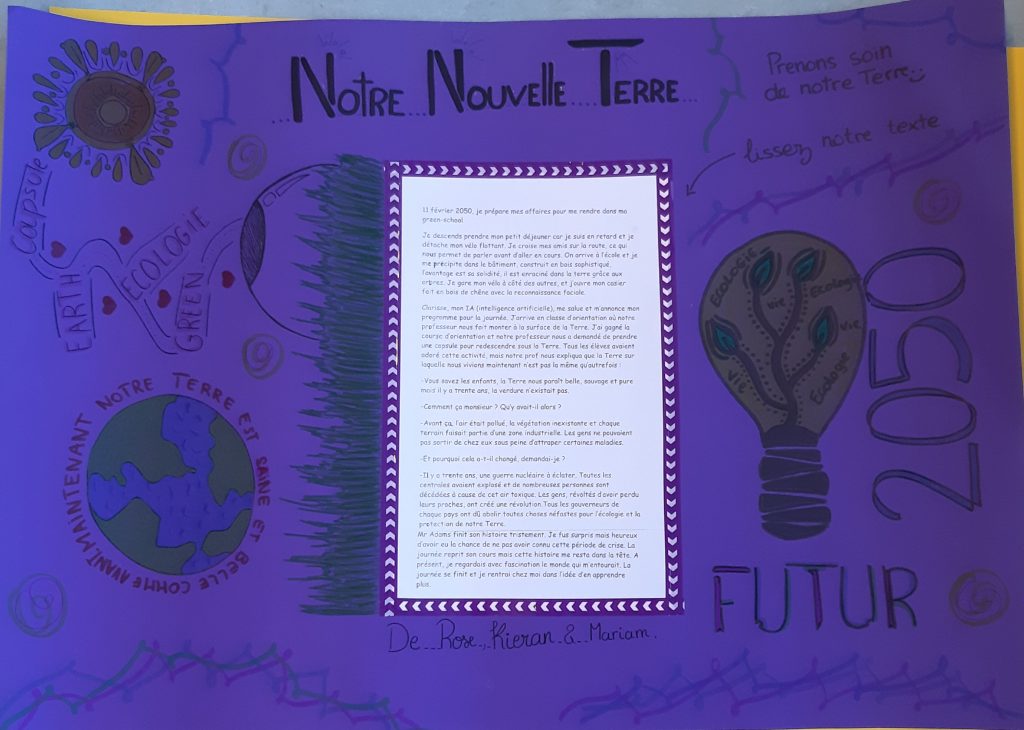 ...Notre...Nouvelle...Terre...
Prenons soin
de notre Terre
lissez notre texte
Capsule
EARTH
ECOLOGIE
GREEN
MAINTENANT NOTRE TERRE EST SAINE ET BELLE COMME AVANT.
11 février 2050, je prépare mes affaires pour me rendre dans ma
green-school
Je descends prendre mon petit déjeuner car je suis en retard et je
détache mon vélo flottant. Je croise mes amis sur la route, ce qui
nous permet de parler avant d'aller en cours. On arrive à l'école et je
me précipite dans le bâtiment, construit en bois sophistiqué,
l'avantage est sa solidité, il est enraciné dans la terre grâce aux
arbres. Je gare mon vélo à côté des autres, et j'ouvre mon casier
fait en bois de chêne avec la reconnaissance faciale.
Clarisse, mon IA (intelligence artificielle), me salue et m'annonce mon
programme pour la journée. J'arrive en classe d'orientation où notre
professeur nous fait monter à la surface de la Terre. J'ai gagné la
course d'orientation et notre professeur nous a demandé de prendre
une capsule pour redescendre sous la Terre. Tous les élèves avaient
adoré cette activité, mais notre prof nous expliqua que la Terre sur
laquelle nous vivions maintenant n'est pas la même qu'autrefois :
-Vous savez les enfants, la Terre nous paraît belle, sauvage et pure
mais il y a trente ans, la verdure n'existait pas.
-Comment ça monsieur ? Qu'y avait-il alors ?
-Avant ça, l'air était pollué, la végétation inexistante et chaque
terrain faisait partie d'une zone industrielle. Les gens ne pouvaient
pas sortir de chez eux sous peine d'attraper certaines maladies.
-Et pourquoi cela a-t-il changé, demandai-je ?
-Il y a trente ans, une guerre nucléaire à éclater. Toutes les
centrales avaient explosé et de nombreuses personnes sont
décédées à cause de cet air toxique. Les gens, révoltés d'avoir perdu
leurs proches, ont créé une révolution. Tous les gouverneurs de
chaque pays ont dû abolir toutes choses néfastes pour l'écologie et la
protection de notre Terre.
Mr Adams finit son histoire tristement. Je fus surpris mais heureux
d'avoir eu la chance de ne pas avoir connu cette période de crise. La
journée reprit son cours mais cette histoire me resta dans la tête. A
présent, je regardais avec fascination le monde qui m'entourait. La
journée se finit et je rentrai chez moi dans l'idée d'en apprendre
plus.
De Rose, Kieran & Mariam.
Ecologie
Vie
Ecologie
Vie
Vie
Ecologie
2050
FUTUR